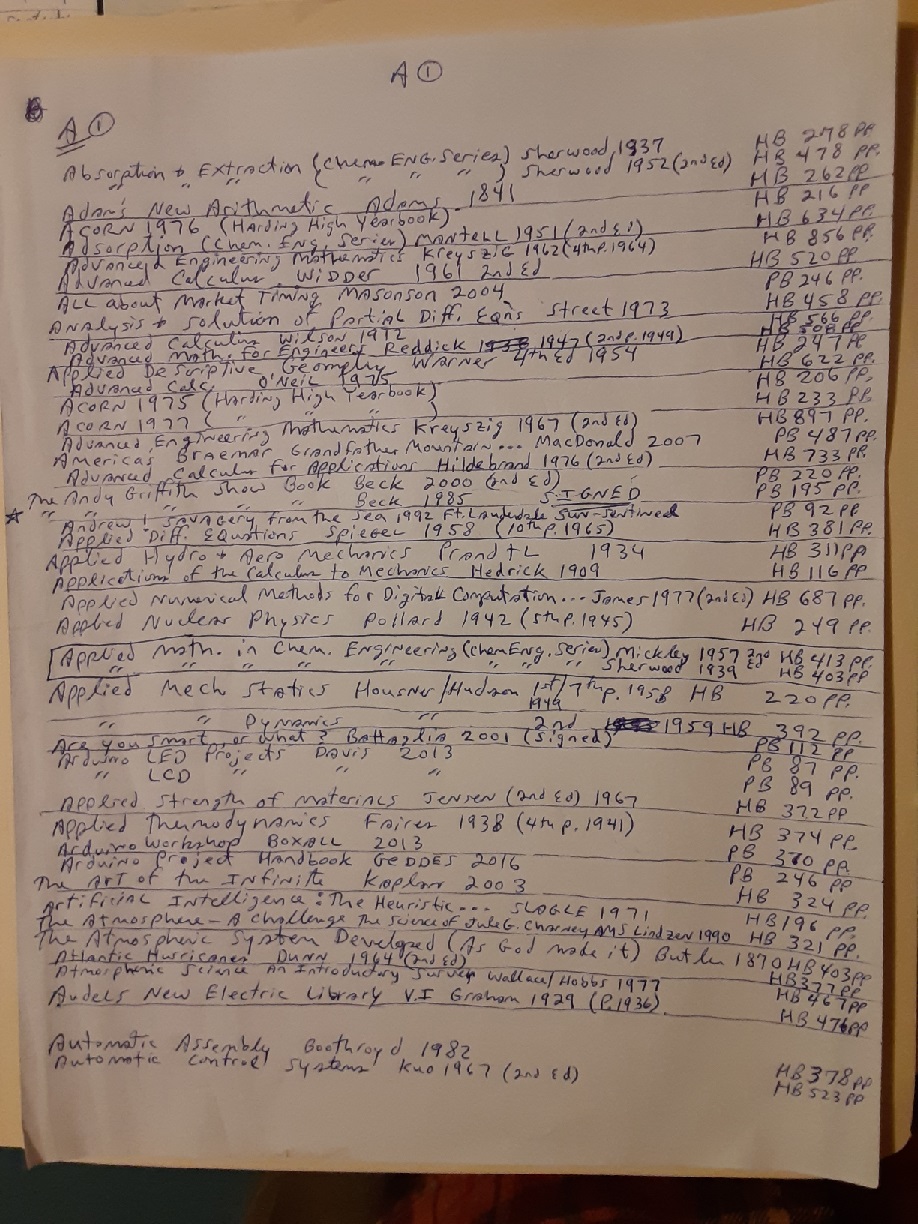 A ①
A ①
Absorption + Extraction (Chem. ENG. Series) Sherwood 1937 HB 278 PP.
" + " ( " " " ) Sherwood 1952 (2nd Ed) HB 478 PP.
Adam's New Arithmetic Adams 1841 HB 262 PP
ACORN 1976 (Harding High Yearbook) HB 216 PP
Adsorption (Chem. Eng. Series) MANTELL 1951 (2nd Ed) HB 634 PP.
Advanced Engineering Mathematics Kreyszig 1962 (4th p. 1964) HB 856 PP.
Advanced Calculus WIDDER 1961 2nd Ed HB 520 PP
ALL about Market Timing MASONSON 2004 PB 246 PP.
ANALYSIS + Solution of Partial Diff. Eqn's Street 1973 HB 458 PP.
Advanced Calculus Wilson 1912 HB 566 PP.
Advanced Math. for Engineers Reddick 1947 (2nd p. 1949) HB 508 PP.
Applied Descriptive Geometry Warner 4th Ed 1954 HB 247 PP
Advanced Calc. O'Neil 1975 HB 622 PP.
ACORN 1975 (Harding High Yearbook) HB 206 PP.
ACORN 1977 ( " " " ) HB 233 PP.
Advanced Engineering Mathematics Kreyszig 1967 (2nd Ed) HB 897 PP.
Americas Braemar Grandfather Mountain... MacDonald 2007 PB 487 PP.
Advanced Calculus for Applications Hildebrand 1976 (2nd Ed) HB 733 PP.
The Andy Griffith Show Book Beck 2000 (2nd Ed) PB 220 PP.
" " " " Beck 1985 SIGNED PB 195 PP.
Andrew! Savagery from the Sea 1992 Ft. Lauderdale Sun-Sentinel PB 92 PP
Applied Diff. Equations Spiegel 1958 (10th p. 1965) HB 381 PP.
Applied Hydro + Aero Mechanics Prandtl 1934 HB 311 PP
Applications of the Calculus to Mechanics Hedrick 1909 HB 116 PP
Applied Numerical Methods for Digital Computation... James 1977 (2nd Ed) HB 687 PP.
Applied Nuclear Physics Pollard 1942 (5th p. 1945) HB 249 PP.
Applied Math. in Chem. Engineering (Chem Eng. Series) Mickley 1957 2nd HB 413 PP.
" " " " " " " " Sherwood 1939 Ed HB 403 PP
Applied Mech Statics Housner/Hudson 1st/1949 7th p. 1958 HB 220 PP.
" " Dynamics " 2nd 1959 HB 392 PP.
Are you smart, or what? Battaglia 2001 (Signed) PB 112 PP
Arduino LED Projects Davis 2013 PB 87 PP.
" LCD " " " PB 89 PP.
Applied Strength of Materials Jensen (2nd Ed) 1967 HB 372 PP
Applied Thermodynamics Faires 1938 (4th p. 1941) HB 374 PP.
Arduino Workshop BOXALL 2013 PB 370 PP.
Arduino Project Handbook GEDDES 2016 PB 246 PP
The ART of the INFinite Kaplan 2003 HB 324 PP.
Artificial Intelligence: The Heuristic... SLAGLE 1971 HB 196 PP.
The Atmosphere - A Challenge The Science of Jule G. Charney AMS Lindzen 1990 HB 321 PP.
The Atmospheric System Developed (As God made it) Butler 1870 HB 403 PP
Atlantic Hurricanes DUNN 1964 (2nd Ed) HB 377 PP
Atmospheric Science An Introductory Survey Wallace/Hobbs 1977 HB 467 PP
Audels New Electric Library V.I Graham 1929 (P. 1936) HB 476 PP
Automatic Assembly Boothroyd 1982 HB 378 PP
Automatic Control Systems Kuo 1967 (2nd Ed) HB 523 PP